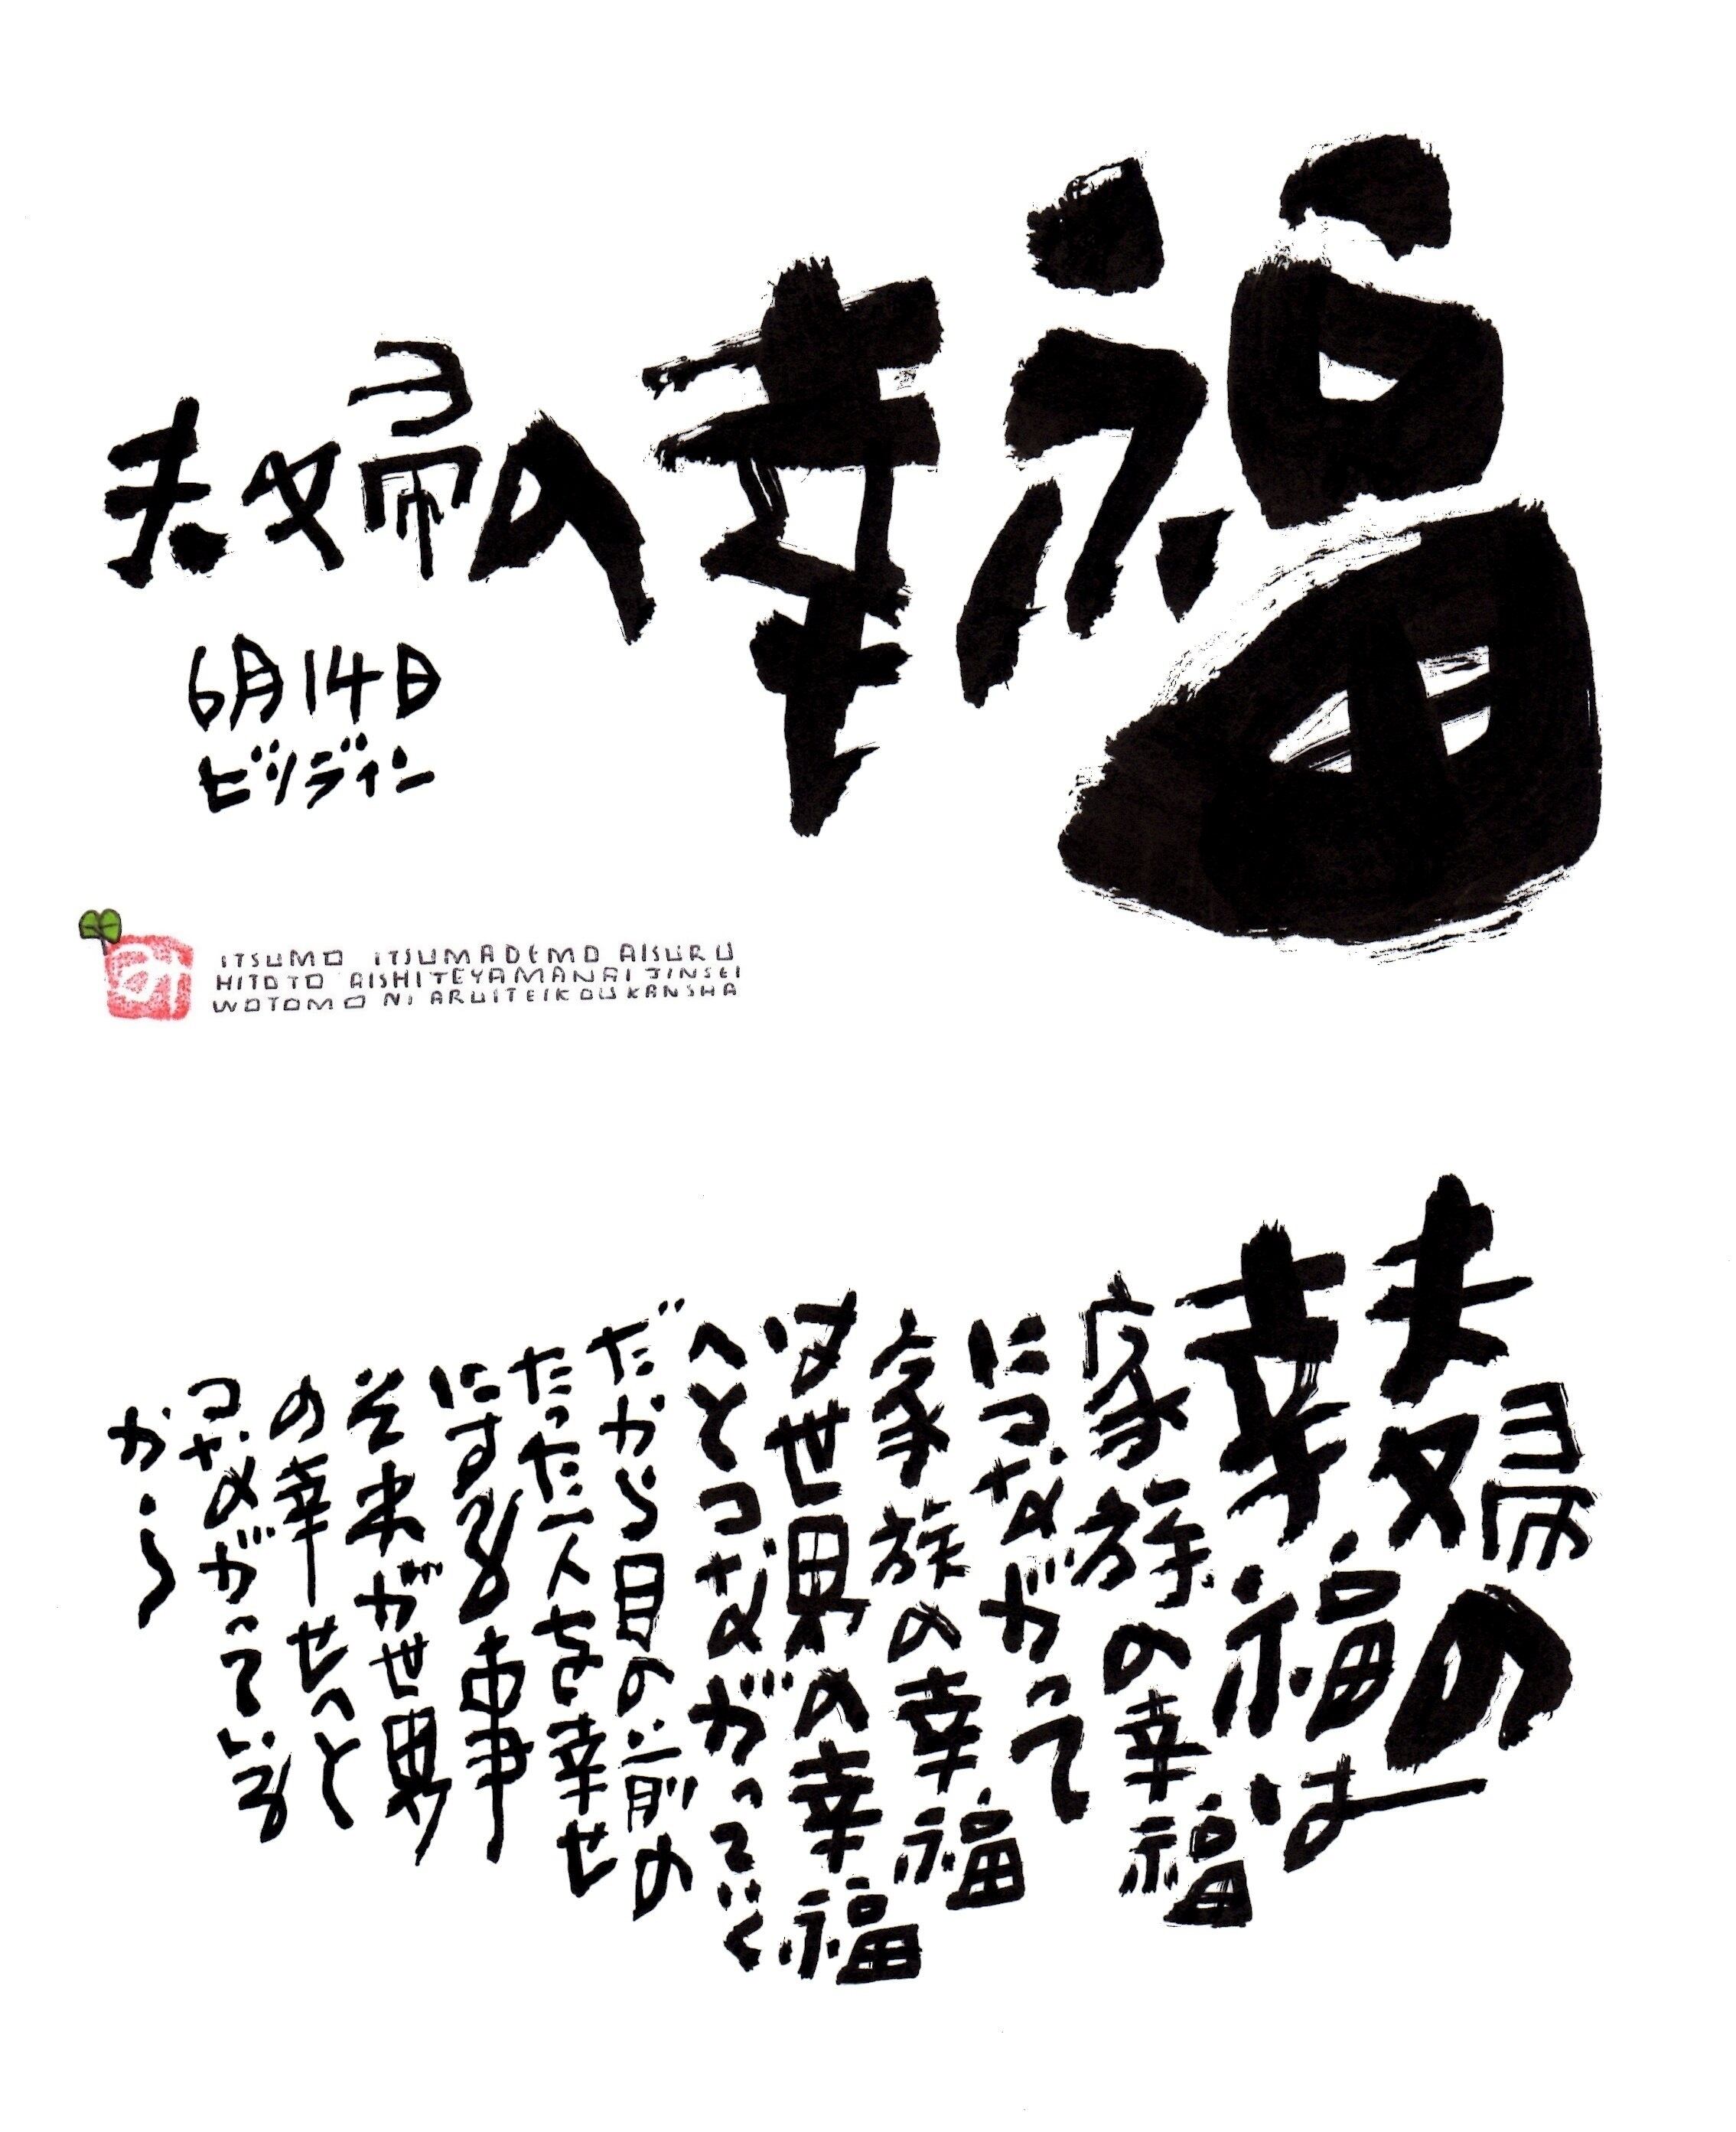 夫婦の幸福
6月14日
ビリディアン
ITSUMO ITSUMADEMO AISURU
HITOTO AISHITEYAMANAI JINSEI
WOTOMO NI ARUITEIKOU KANSHA
夫婦の
幸福は
家族の幸福
につながって
家族の幸福
は世界の幸福
へとつながっていく
だから目の前の
たった一人を幸せ
にする事
それが世界
の幸せへと
つながっている
から